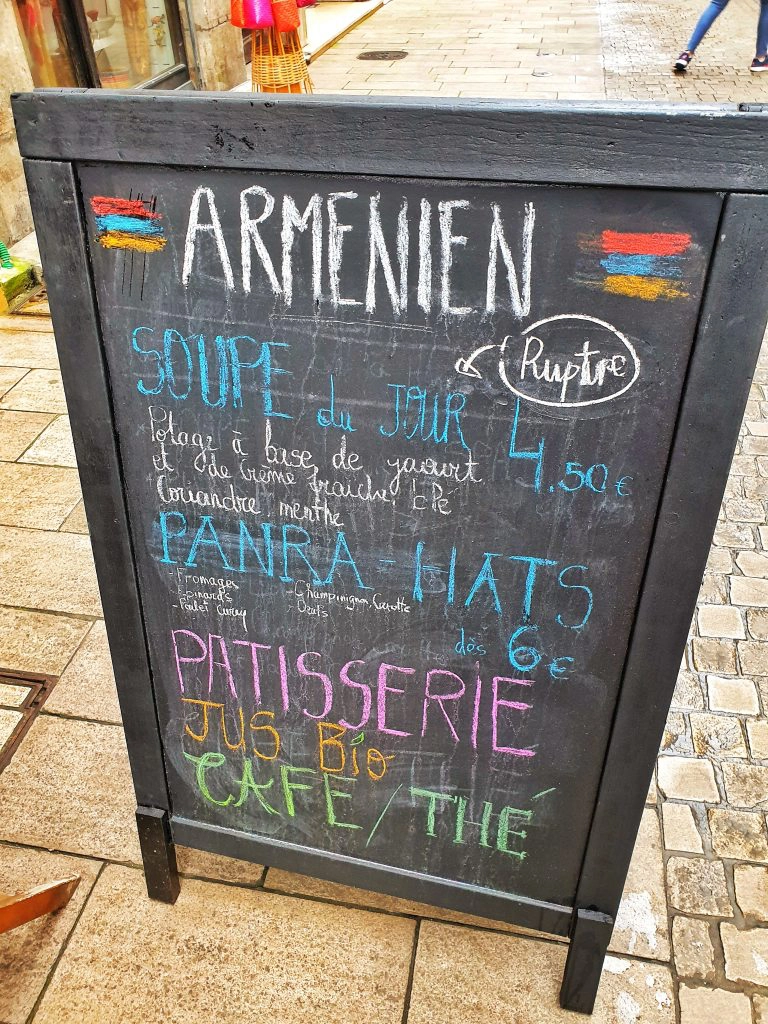 ARMENIEN
Ruptre
SOUPE du JOUR 4.50€
Potage à base de yaourt
et de crème fraîche, blé
Coriandre, menthe
PANRA-HATS
- Fromages
- Epinards
- Poulet Curry
- Champinignon, Carotte
- Oeufs
dès 6€
PATISSERIE
JUS Bio
CAFE / THÉ